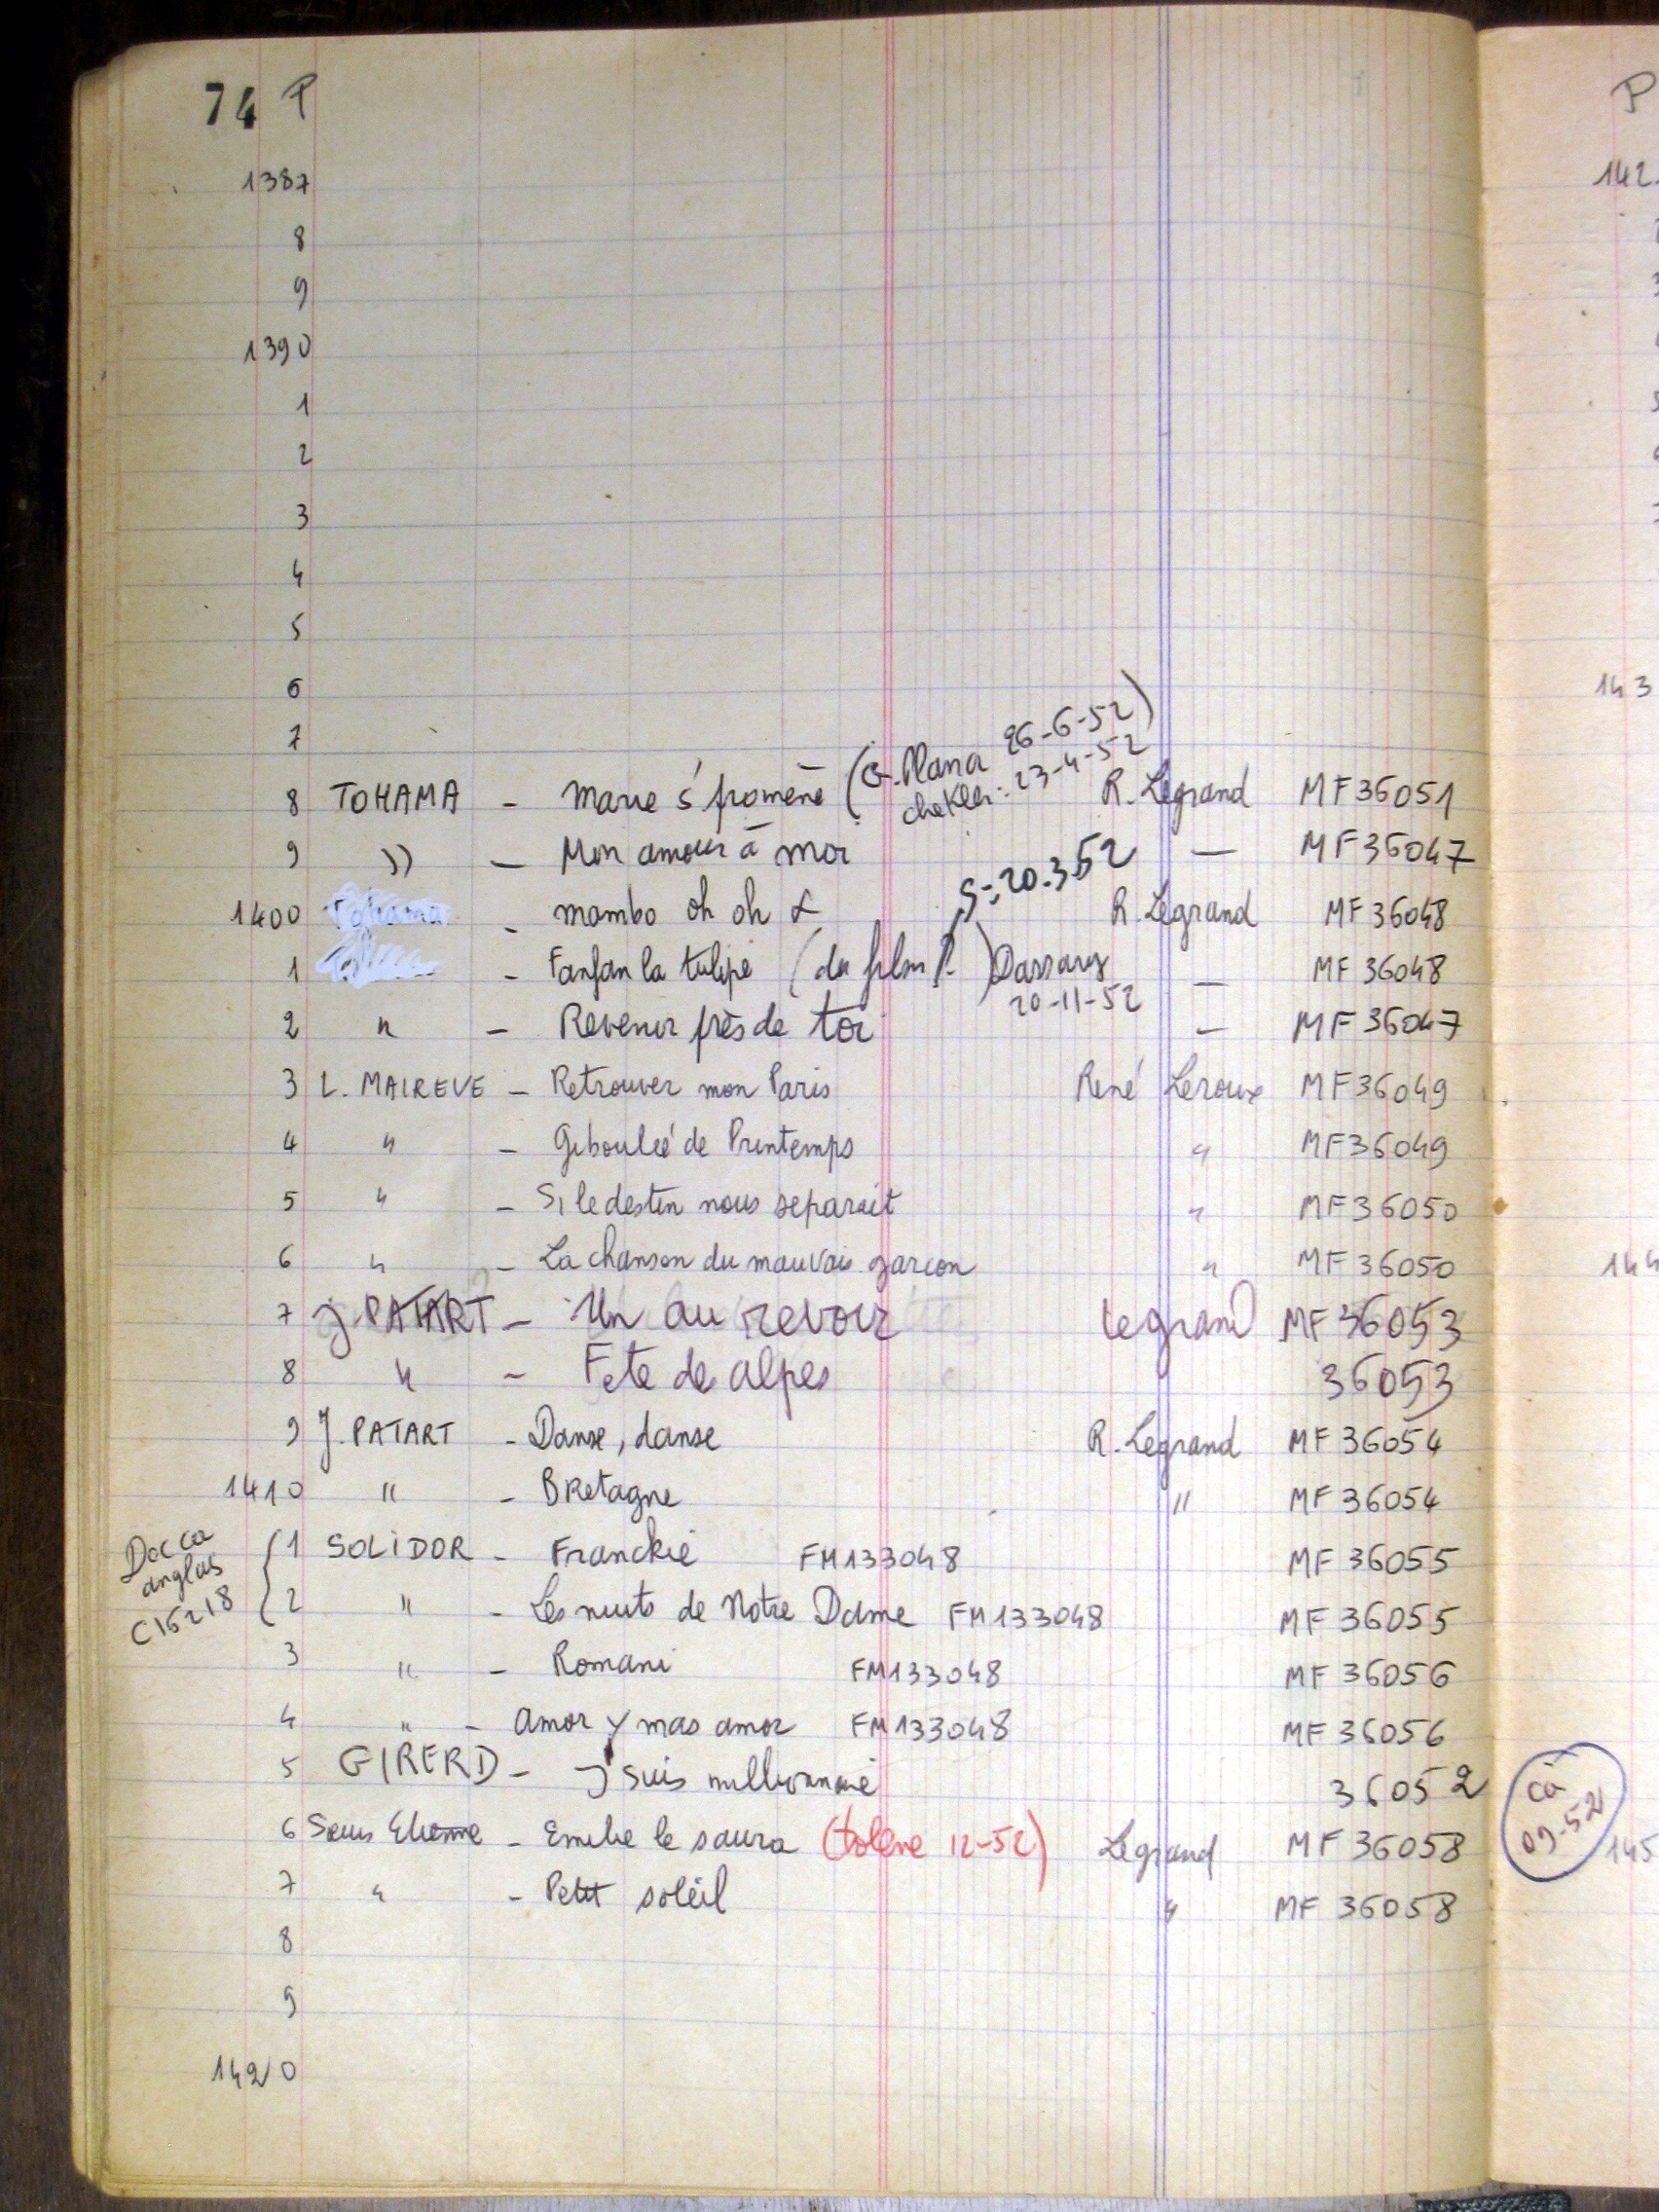 74 P
1387
8
9
1390
1
2
3
4
5
6
7
8 TOHAMA - Marie s'promène (G. Plana 26-6-52) R. Legrand MF36051
chekler: 23-4-52
9 " - Mon amour à moi — MF36047
S: 20.3.52
1400 Tohama - mambo oh oh R. Legrand MF36048
1 - Fanfan la tulipe (du film F.) Dassary — MF36048
20-11-52
2 " - Revenir près de toi — MF36047
3 L. MAIREVE - Retrouver mon Paris René Leroux MF36049
4 " - Giboulée de Printemps " MF36049
5 " - Si le destin nous separait " MF36050
6 " - La chanson du mauvais garcon " MF36050
7 J. PATART - Un au revoir Legrand MF36053
8 " - Fete des alpes 36053
9 J. PATART - Danse, danse R. Legrand MF36054
1410 " - BRetagne " MF36054
Decca
anglais
C16218
1 SOLIDOR - Franckie FM133048 MF36055
2 " - Les nuits de Notre Dame FM133048 MF36055
3 " - Romani FM133048 MF36056
4 " - amor y mas amor FM133048 MF36056
5 GIRERD - J'suis millionnaire 36052
6 Sœurs Etienne - Emilie le saura (tolène 12-52) Legrand MF36058
7 " - Petit soleil " MF36058
8
9
1420
P
142
143
144
ca
09-52
145